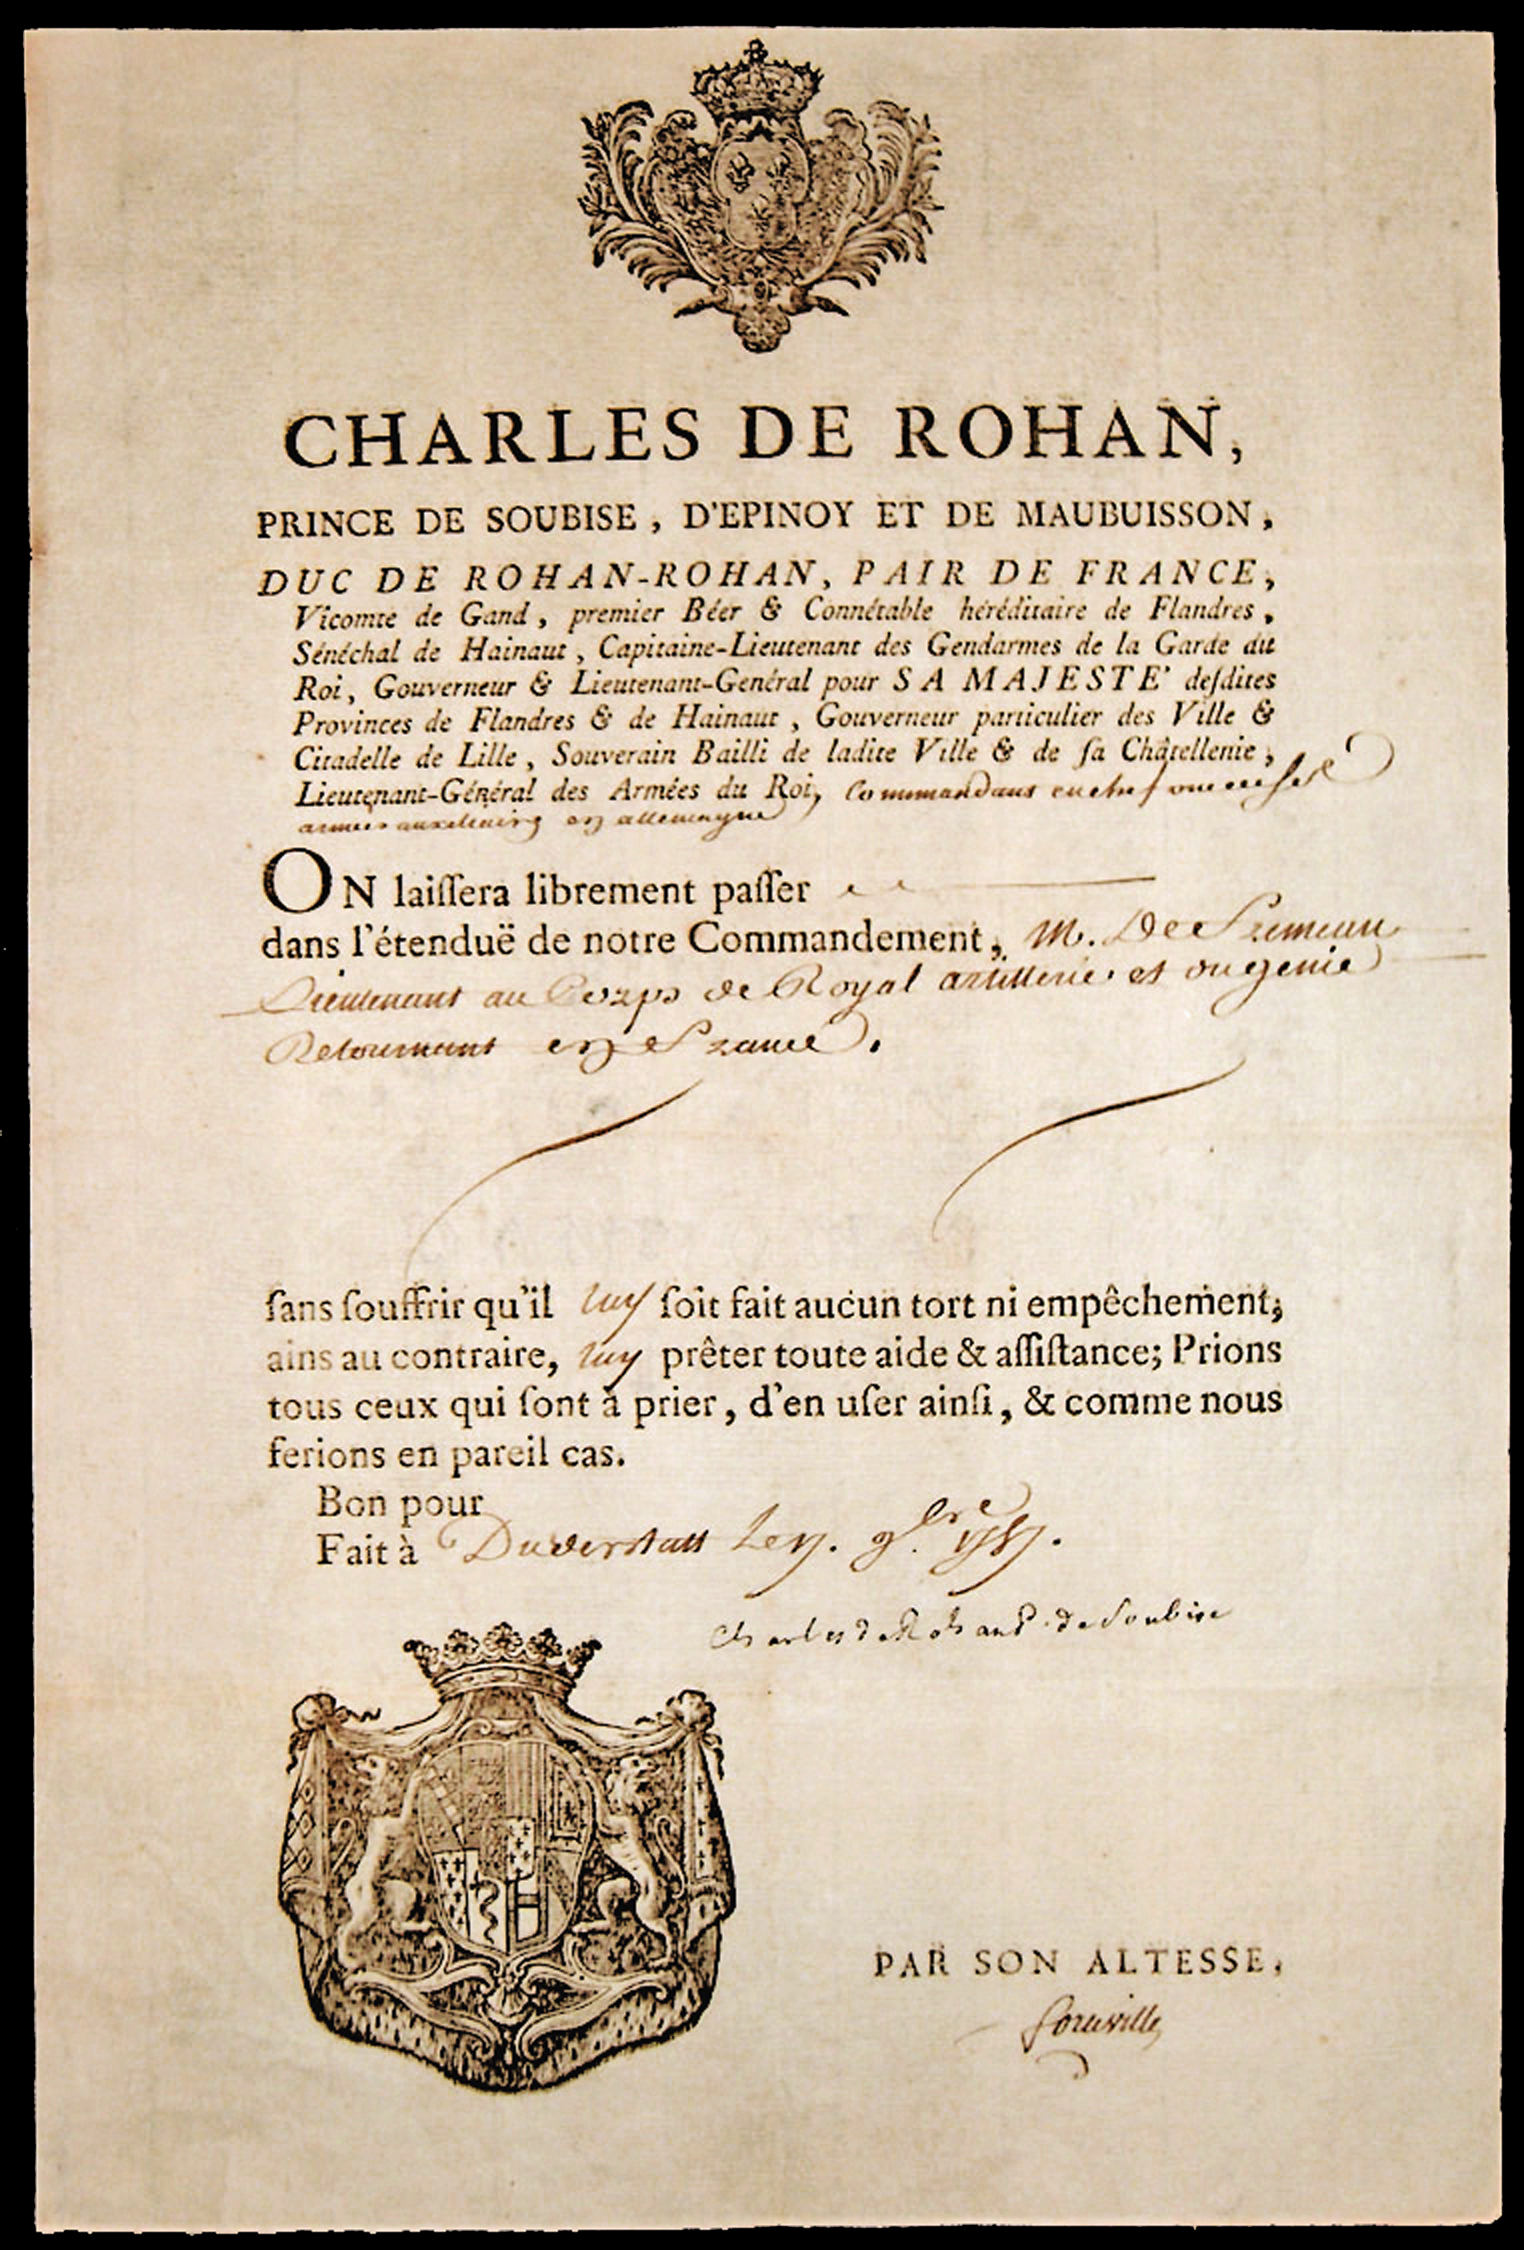 CHARLES DE ROHAN,
PRINCE DE SOUBISE, D'EPINOY ET DE MAUBUISSON,
DUC DE ROHAN-ROHAN, PAIR DE FRANCE,
Vicomte de Gand, premier Béer & Connétable héréditaire de Flandres,
Sénéchal de Hainaut, Capitaine-Lieutenant des Gendarmes de la Garde du
Roi, Gouverneur & Lieutenant-Général pour SA MAJESTE' deſdites
Provinces de Flandres & de Hainaut, Gouverneur particulier des Ville &
Citadelle de Lille, Souverain Bailli de ladite Ville & de ſa Châtellenie,
Lieutenant-Général des Armées du Roi, Commandant en chef
armées auxiliaires en allemagne
ON laiſſera librement paſſer
dans l'étenduë de notre Commandement, M. De
Lieutenant au Corps de Royal artillerie et du genie
Retournant en France.
ſans ſouffrir qu'il luy ſoit fait aucun tort ni empêchement;
ains au contraire, luy prêter toute aide & aſſiſtance; Prions
tous ceux qui ſont à prier, d'en uſer ainſi, & comme nous
ferions en pareil cas.
Bon pour
Fait à Duderstatt Le 9bre 1757.
Charles de Rohan P. de Soubise
PAR SON ALTESSE,